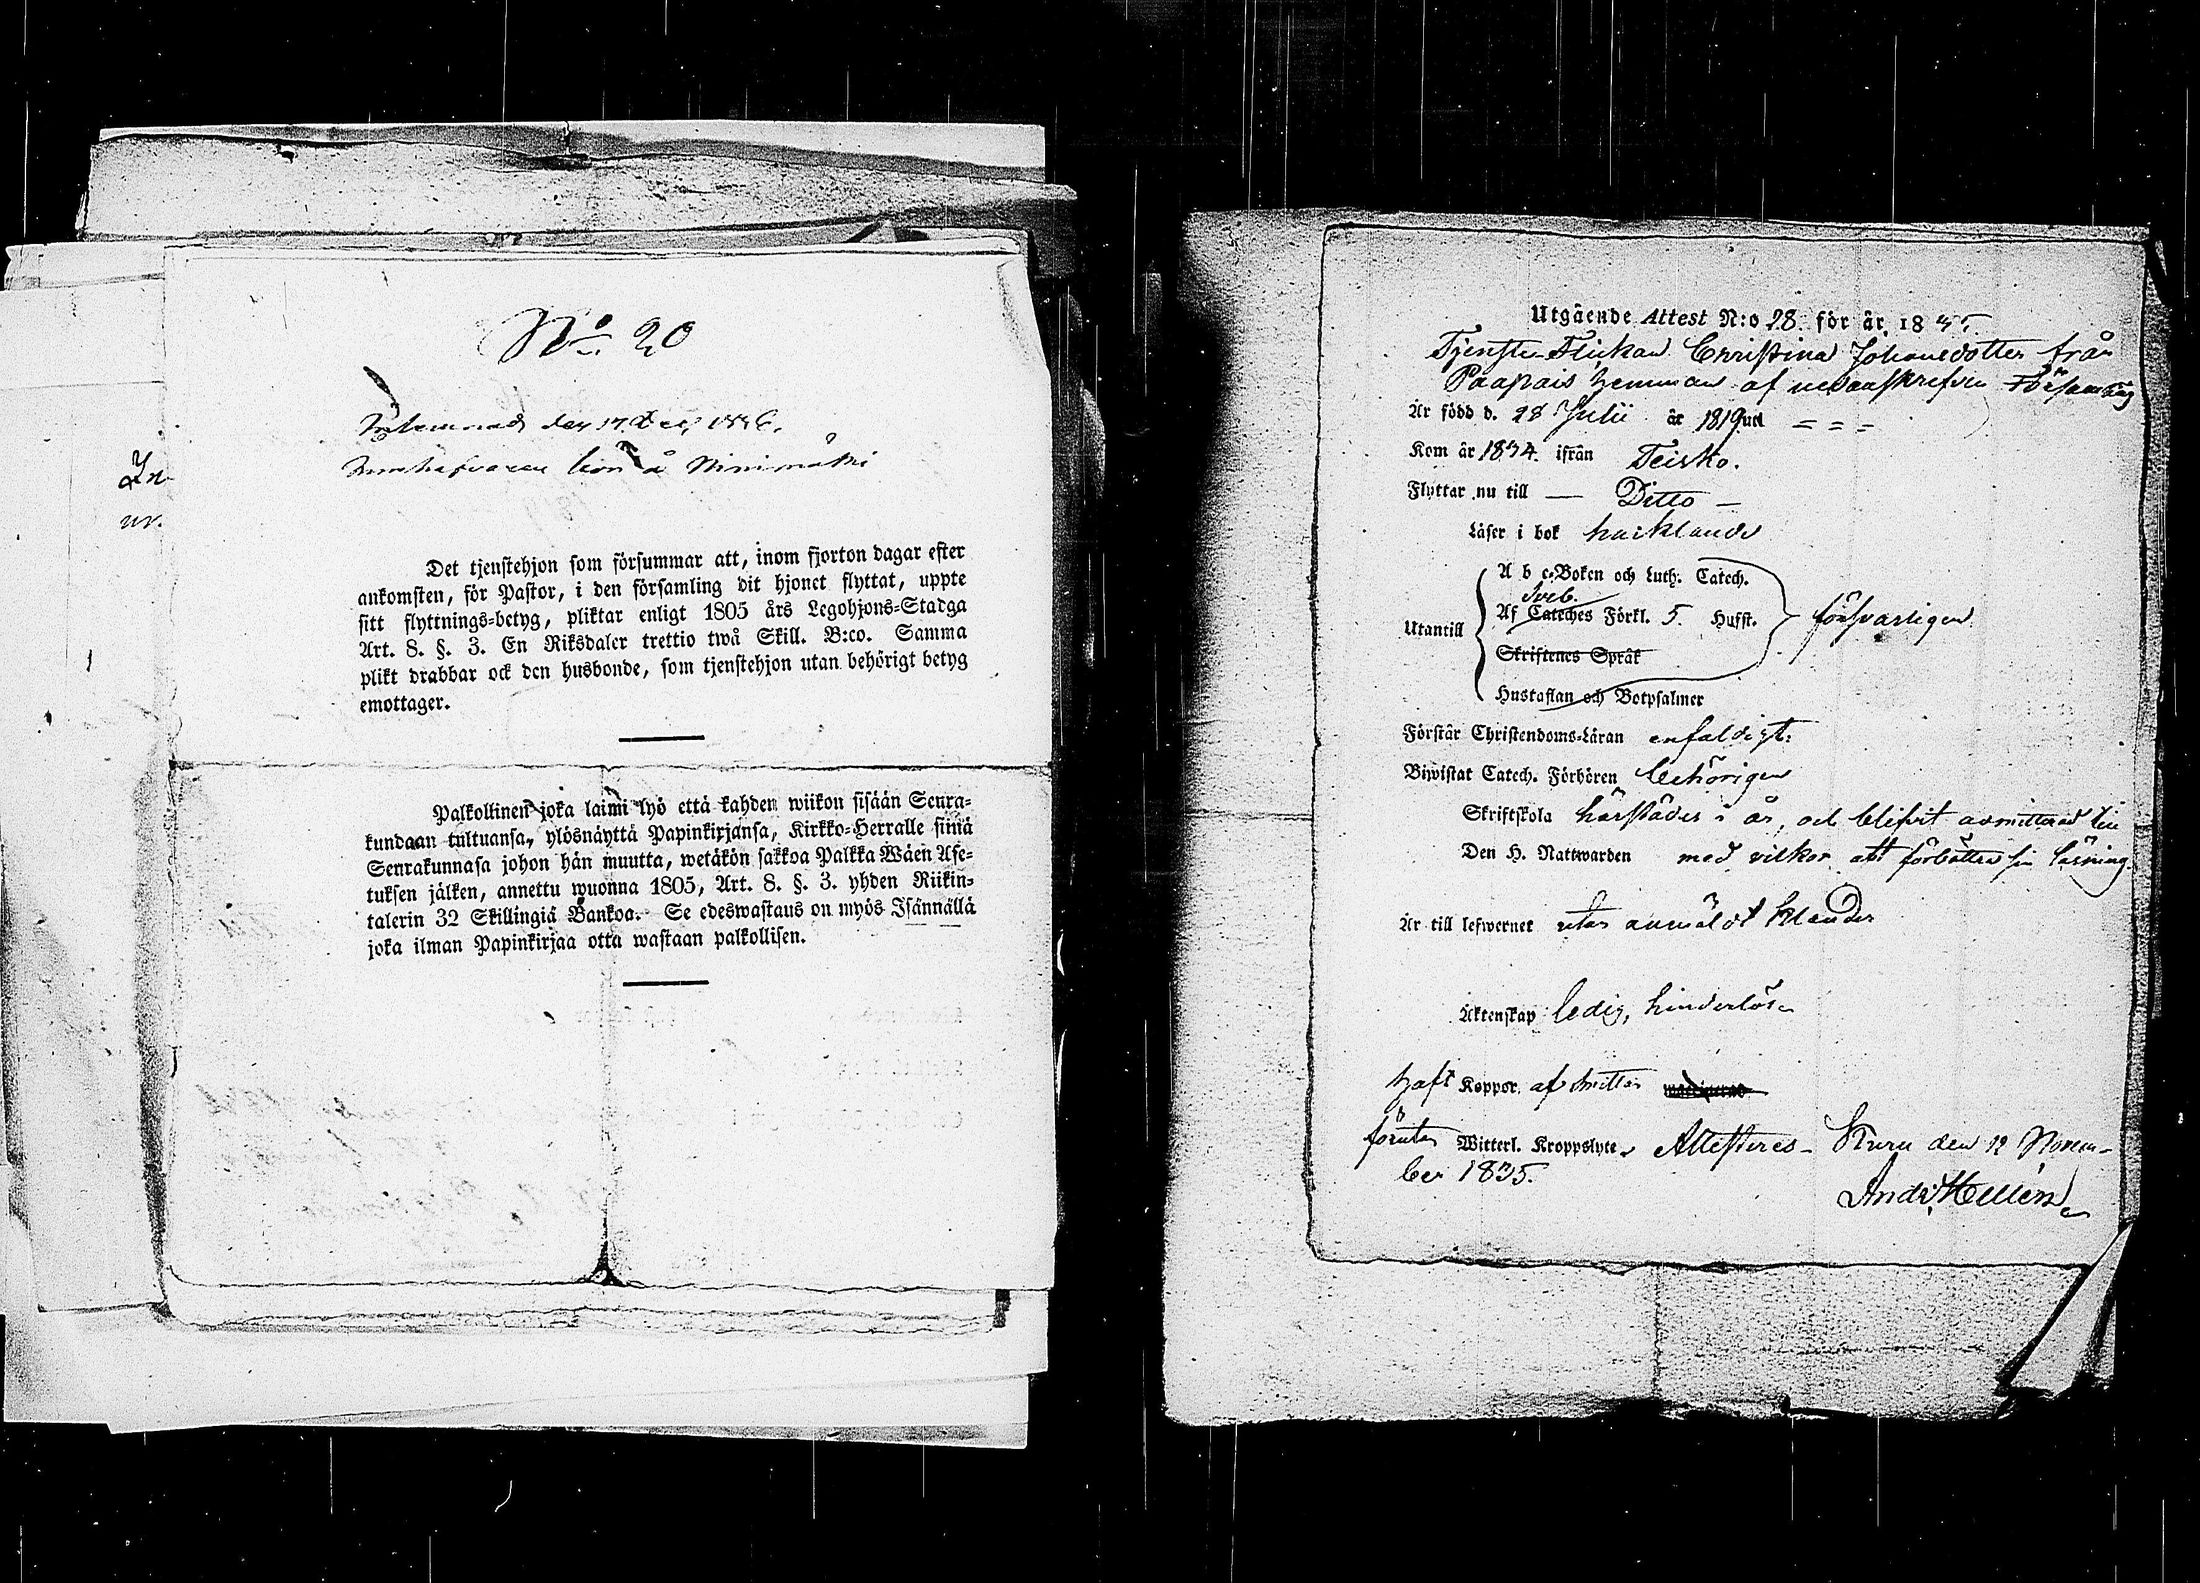 No 20
Inlemnad den 17 Dec 1836.
Innehafvaren bor å Ninimäki
In-
nr.
Det tjenstehjon som försummar att, inom fjorton dagar efter
ankomsten, för Pastor, i den församling dit hjonet flyttat, uppte
sitt flyttnings-betyg, pliktar enligt 1805 års Legohjons-Stadga
Art. 8. §. 3. En Riksdaler trettio twå Skill. B:co. Samma
plikt drabbar ock den husbonde, som tjenstehjon utan behörigt betyg
emottager.
Palkollinen joka laimi lyö että kahden wiikon sisään Seura-
kundaan tultuansa, ylösnäyttä Papinkirjansa, Kirkko-Herralle siinä
Seurakunnasa johon hän muutta, wetäkön sakkoa Palkka Wäen Ase-
tuksen jälken, annettu wuonna 1805, Art. 8. §. 3. yhden Riikin-
talerin 32 Skillingiä Bankoa. Se edeswastaus on myös Isännällä
joka ilman Papinkirjaa otta wastaan palkollisen.
Utgående Attest N:o 28. för år 1835.
Tjenste-Flickan Christina Johansdotter från
Paapais hemman af nedanskrefven Församling
Är född d. 28 Julii år 1819 uti = = =
Kom år 1834. ifrån Teisko.
Flyttar nu till — Ditto —
Läser i bok hacklande
A b c-Boken och Luth. Catech.
Sveb.
Utantill Af Cateches Förkl. 5. Hufst. försvarligen
Skriftenes Språk
Hustaflan och Botpsalmer
Förstår Christendoms-Läran enfaldigt.
Biwistat Catech. Förhören behörigen
Skriftskola härstädes i år, och blifvit admitterad till
Den H. Nattwarden med vilkor att förbättra sin läsning.
Är till lefwernet utan anmäldt klander
Äktenskap ledig, hinderlös
haft Koppor. af smittan
förutan Witterl. Kroppslyte. Attesteras Kuru den 12 Novem-
ber 1835.
And. Hellén